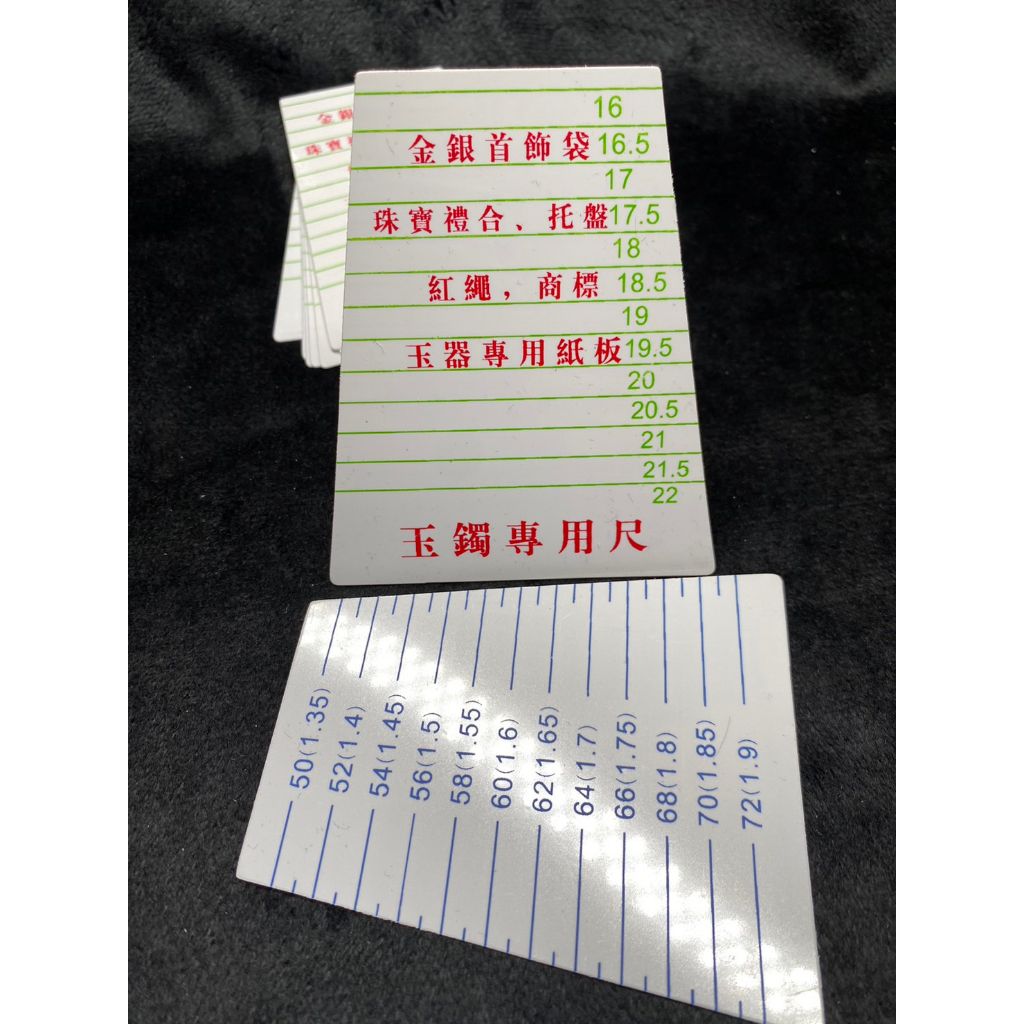 16
金銀首飾袋16.5
17
珠寶禮合、托盤17.5
18
紅繩，商標 18.5
19
玉器專用紙板19.5
20
20.5
21
21.5
22
玉鐲專用尺
金銀
珠寶
50(1.35)
52(1.4)
54(1.45)
56(1.5)
58(1.55)
60(1.6)
62(1.65)
64(1.7)
66(1.75)
68(1.8)
70(1.85)
72(1.9)